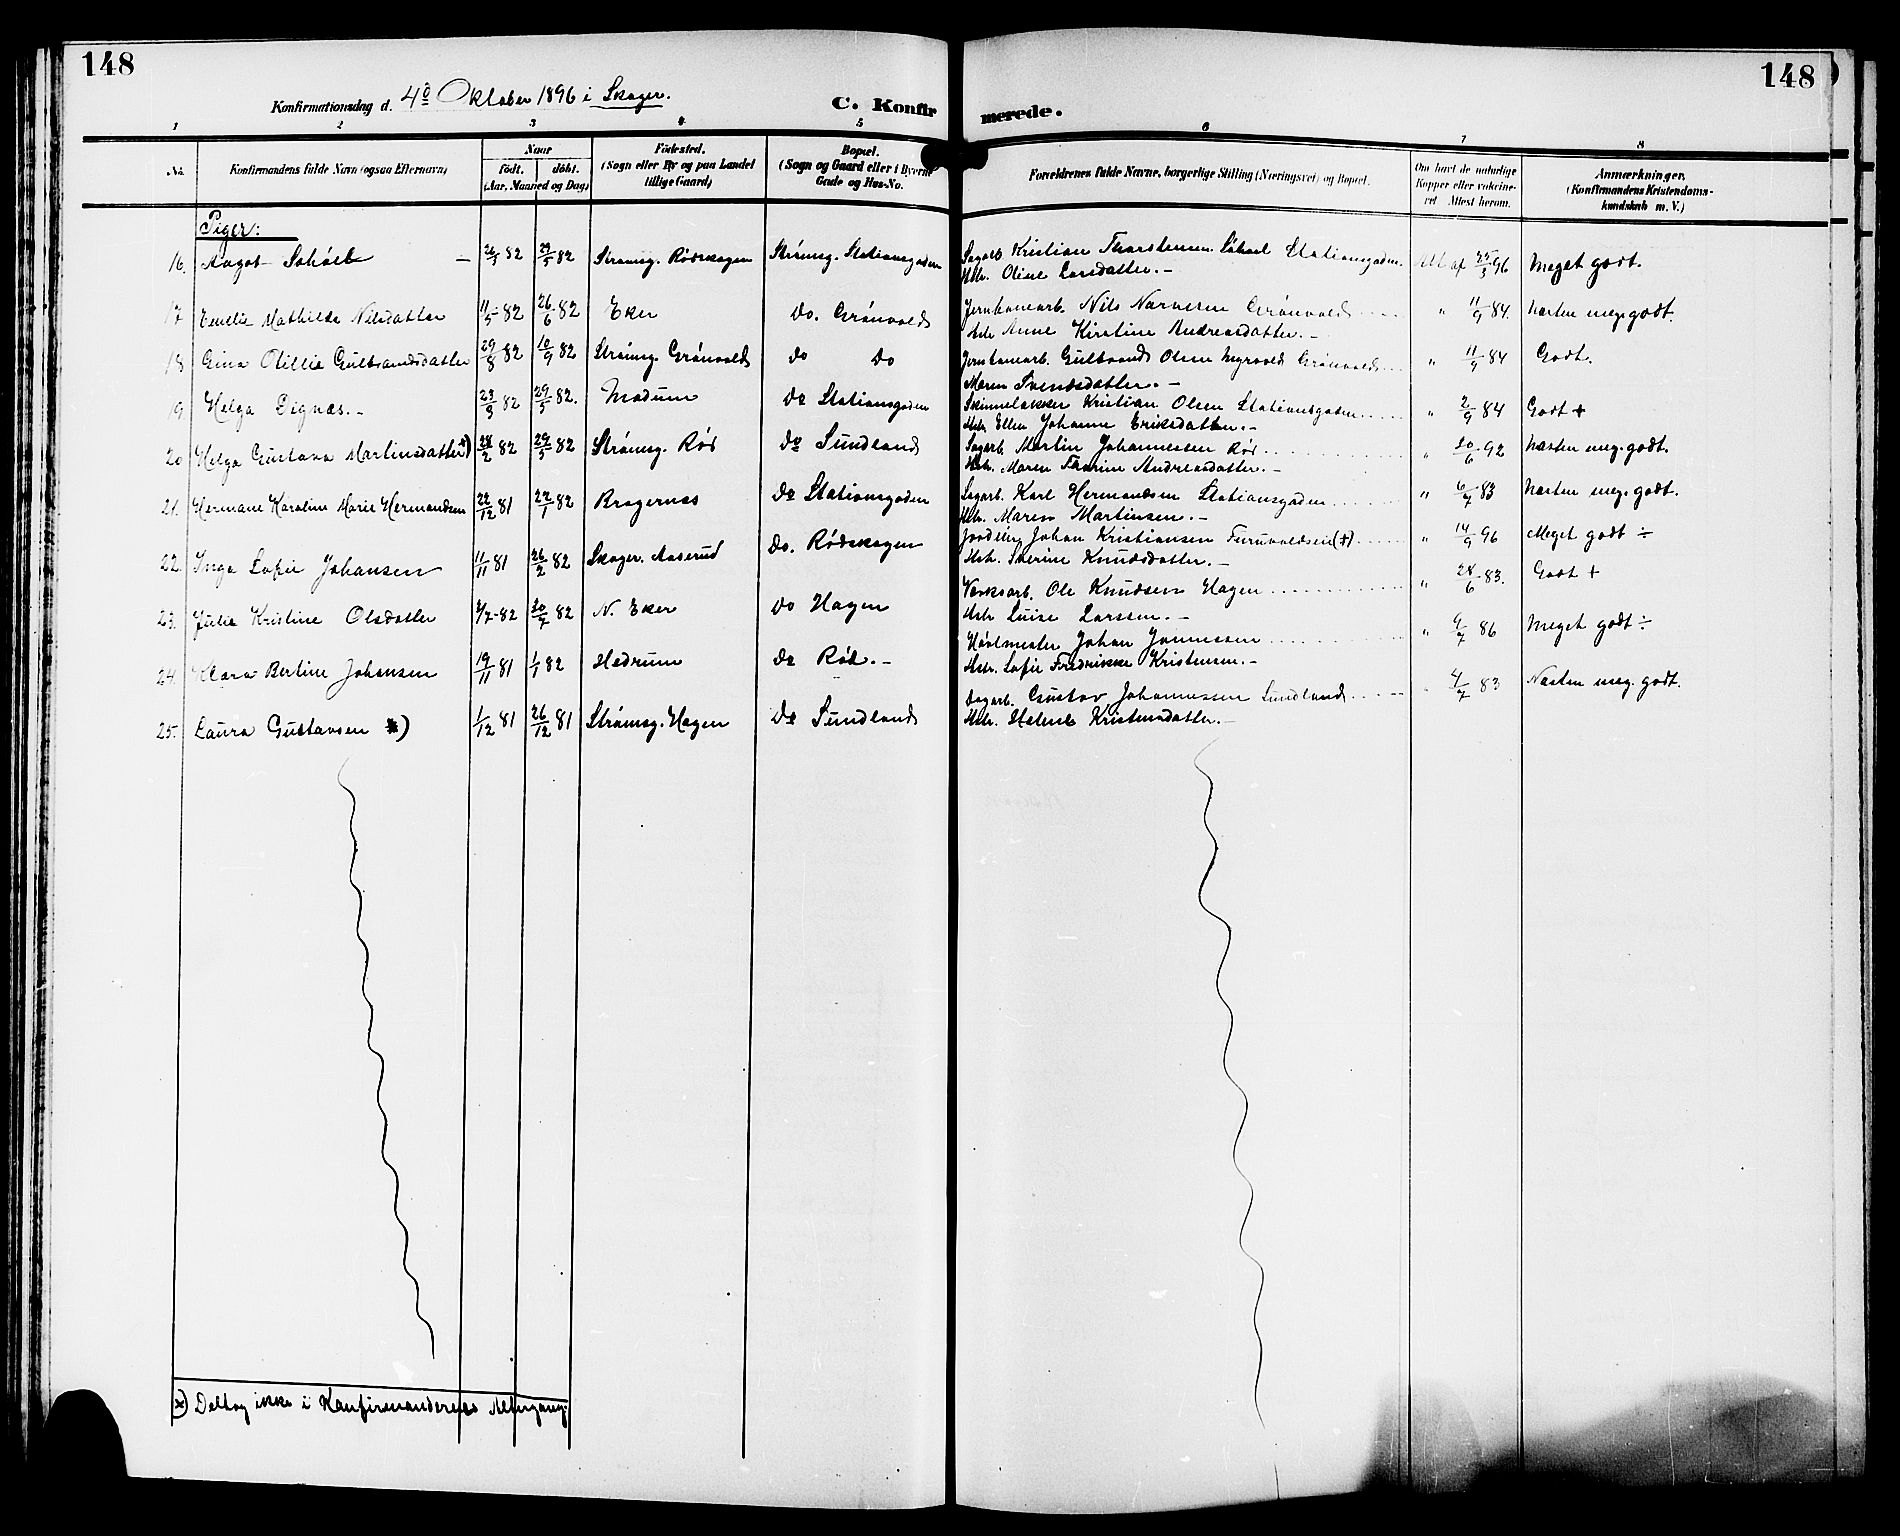 148
148
Konfirmationsdag d. 4de Oktober 1896 i Skoger.
C. Konfirmerede.
1 2 3 4 5 6 7 8
No.
Konfirmandens fulde Navn (ogsaa Efternavn)
Naar
født. døbt.
(Aar, Maaned og Dag)
Fødested.
(Sogn eller By og paa Landet
tillige Gaard)
Bopæl.
(Sogn og Gaard eller i Byerne
Gade og Hus-No.
Forældrenes fulde Navne, borgerlige Stilling (Næringsvei) og Bopæl.
Om havt de naturlige
Kopper eller vakcine-
ret Attest herom.
Anmærkninger.
(Konfirmandens Kristendoms-
kundskab m. V.)
Piger:
16. Aagot 82 29/5 82 Strømsg. Rødskogen Strømsg. Stationsgaden Kristian Stationsgaden Att af 96 Meget godt.
Hstr. Oline Larsdatter.-
17 Emelie Mathilde Nilsdatter 11/5-82 26/6 82 Eker do. Grønvold Jernbanearb. Nils Grønvold " 11/9 84. Næsten meg. godt.
Hstr Anne Kirstine Andreasdatter.-
18 Gina Otillie Gulbrandsdatter 29/8 82 10/9 82 Strømsg. Grønvold do do Jernbanearb. Gulbrand Olsen Myrvold Grønvold " 11/9 84 Godt.
Maren Svendsdatter.-
19 Helga Dignæs.- 23/3 82 29/5 82. Modum do Stationsgaden Kristian Olsen Stationsgaden " 2/9 84 Godt +
Hstr. Ellen Johanne Eriksdatter.-
20 Helga Gustava Martinsdatter *) 82 29/5 82 Strømsg. Rød do Sundland Sagarb. Martin Johannessen Rød " 20/6 92 Næsten meg. godt.
Hstr. Maren Thorine Andreasdatter.-
21. Hermane Karoline Marie Hermandsen 22/12 81 22/1 82 Bragernes do Stationsgaden Sagarb. Karl Hermandsen Stationsgaden " 6/7 83 Næsten meg. godt.
Hstr. Maren Martinsen.-
22 Inga Sofie Johansen 11/11 81 26/2 82 Skoger. Aaserud do. Rødskogen Johan Kristiansen (+) " 14/9 96 Meget godt ÷
Hstr. Severine Knudsdatter.-
23. Julie Kristine Olsdatter 2/7-82 30/7 82 N. Eker do Hagen Værksarb. Ole Knudsen Hagen " 28/6 83. Godt +
Hstr Luise Larssen.-
24. Klara Bertine Johansen 19/11 81 1/1 82 Hedrum do Rød.- Høvlmester Johan " 9/7 86 Meget godt ÷
Hstr. Sofie Fredrikke Kristensen.-
25. Laura Gustavsen *) 1/12 81 26/12 81 Strømsg. Hagen do Sundland Dagarb. Gustav Johannessen Sundland 4/7 83 Næsten meg. godt.
Hstr. Helene Kristensdatter.-
*) Deltog ikke i Konfirmandernes Altergang.